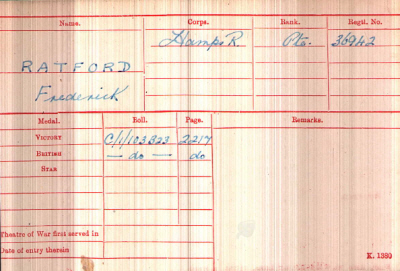 Name. Corps. Rank. Regtl. No.
Hamps R. Pte. 36942
RATFORD
Frederick
Medal. Roll. Page. Remarks.
VICTORY C/1/103B23 2217
BRITISH — do — do
STAR
Theatre of War first served in
Date of entry therein
K. 1380